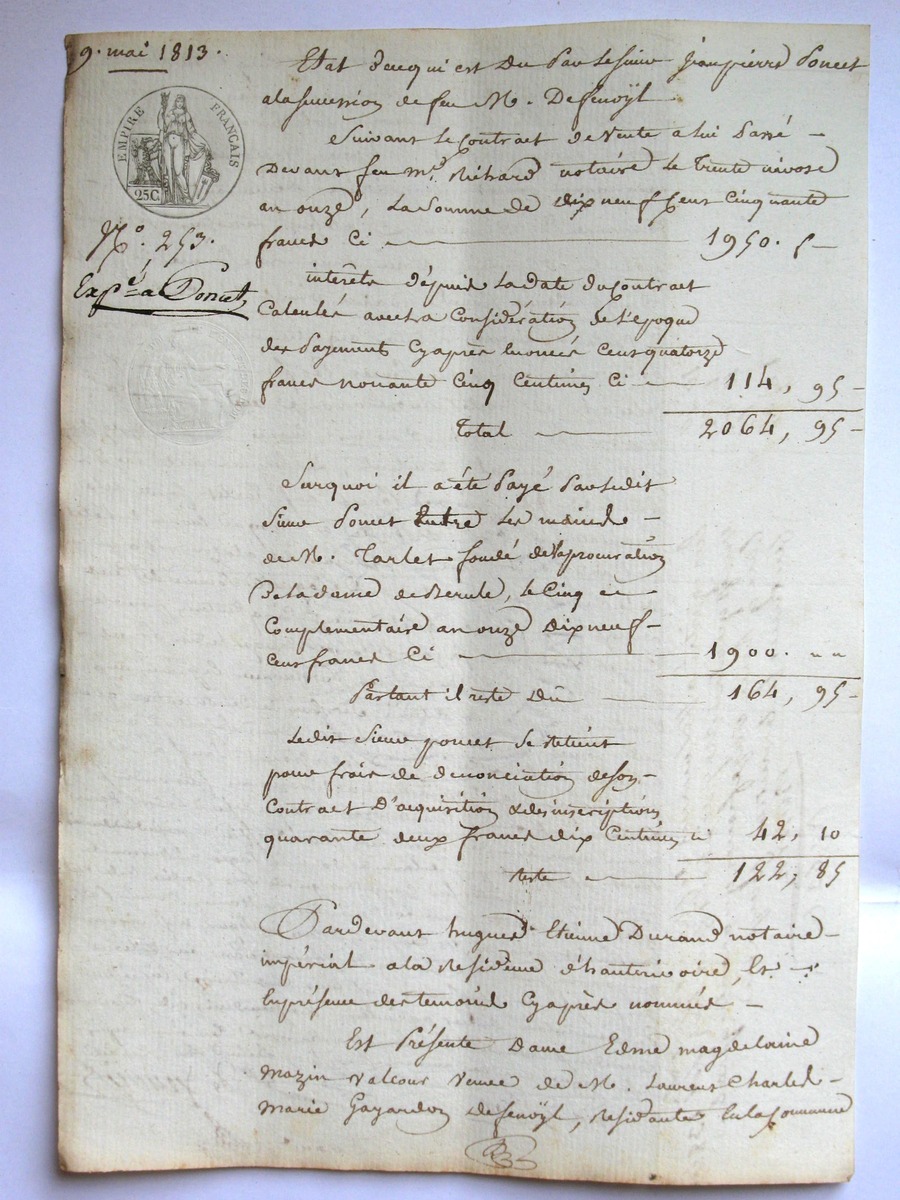 9. mai 1813.
EMPIRE FRANÇAIS
25C.
N.° 253.
Exp.é a Poncet,
Etat de ce qui est Du Par Le sieur jean pierre Poncet
a la succession de feu M. De fenoÿl.
Suivant Le Contrat de Vente a lui Passé –
Devant feu m.e Richard notaire Le Trente nivose
an onze, La Somme de dix neuf Cent Cinquante
francs Ci — 1950. f –
intérêts dépuis La date du Contrat
Calculés avec La Considération de l'epoque
des Payements Cy après Enoncés Cent quatorze
francs nonante Cinq Centimes Ci — 114, 95 –
Total — 2064, 95 –
Surquoi il a été Payé Par Ledit
Sieur Poncet Entre Les mains –
de M. Tarlet fondé de la procuration
De la dame de Berule, le Cinq
Complementaire an onze Dix neuf –
Cent francs Ci — 1900. " "
Partant il reste Dû — 164, 95 –
Ledit Sieur poncet Se retient
pour frais de denonciation de son –
Contract D'acquisition & des inscriptions
quarante deux francs dix Centimes ci 42, 10
reste — 122, 85
Pardevant hugues Etienne Durand notaire –
impérial a la Residence d'hauterivoire, Et –
En présence des temoins Cy après nommés –
Est Présente Dame Edme magdelaine
mazin Valcour Veuve de M. Laurent Charles –
Marie Gayardon de fenoÿl, residante En la Commune